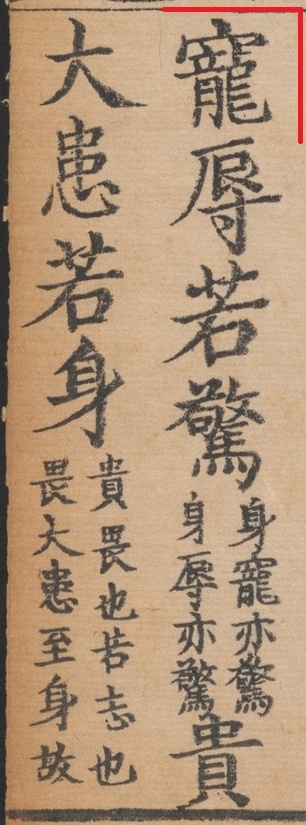 寵辱若驚身寵亦驚身辱亦驚貴
大患若身貴畏也若志也畏大患至身故